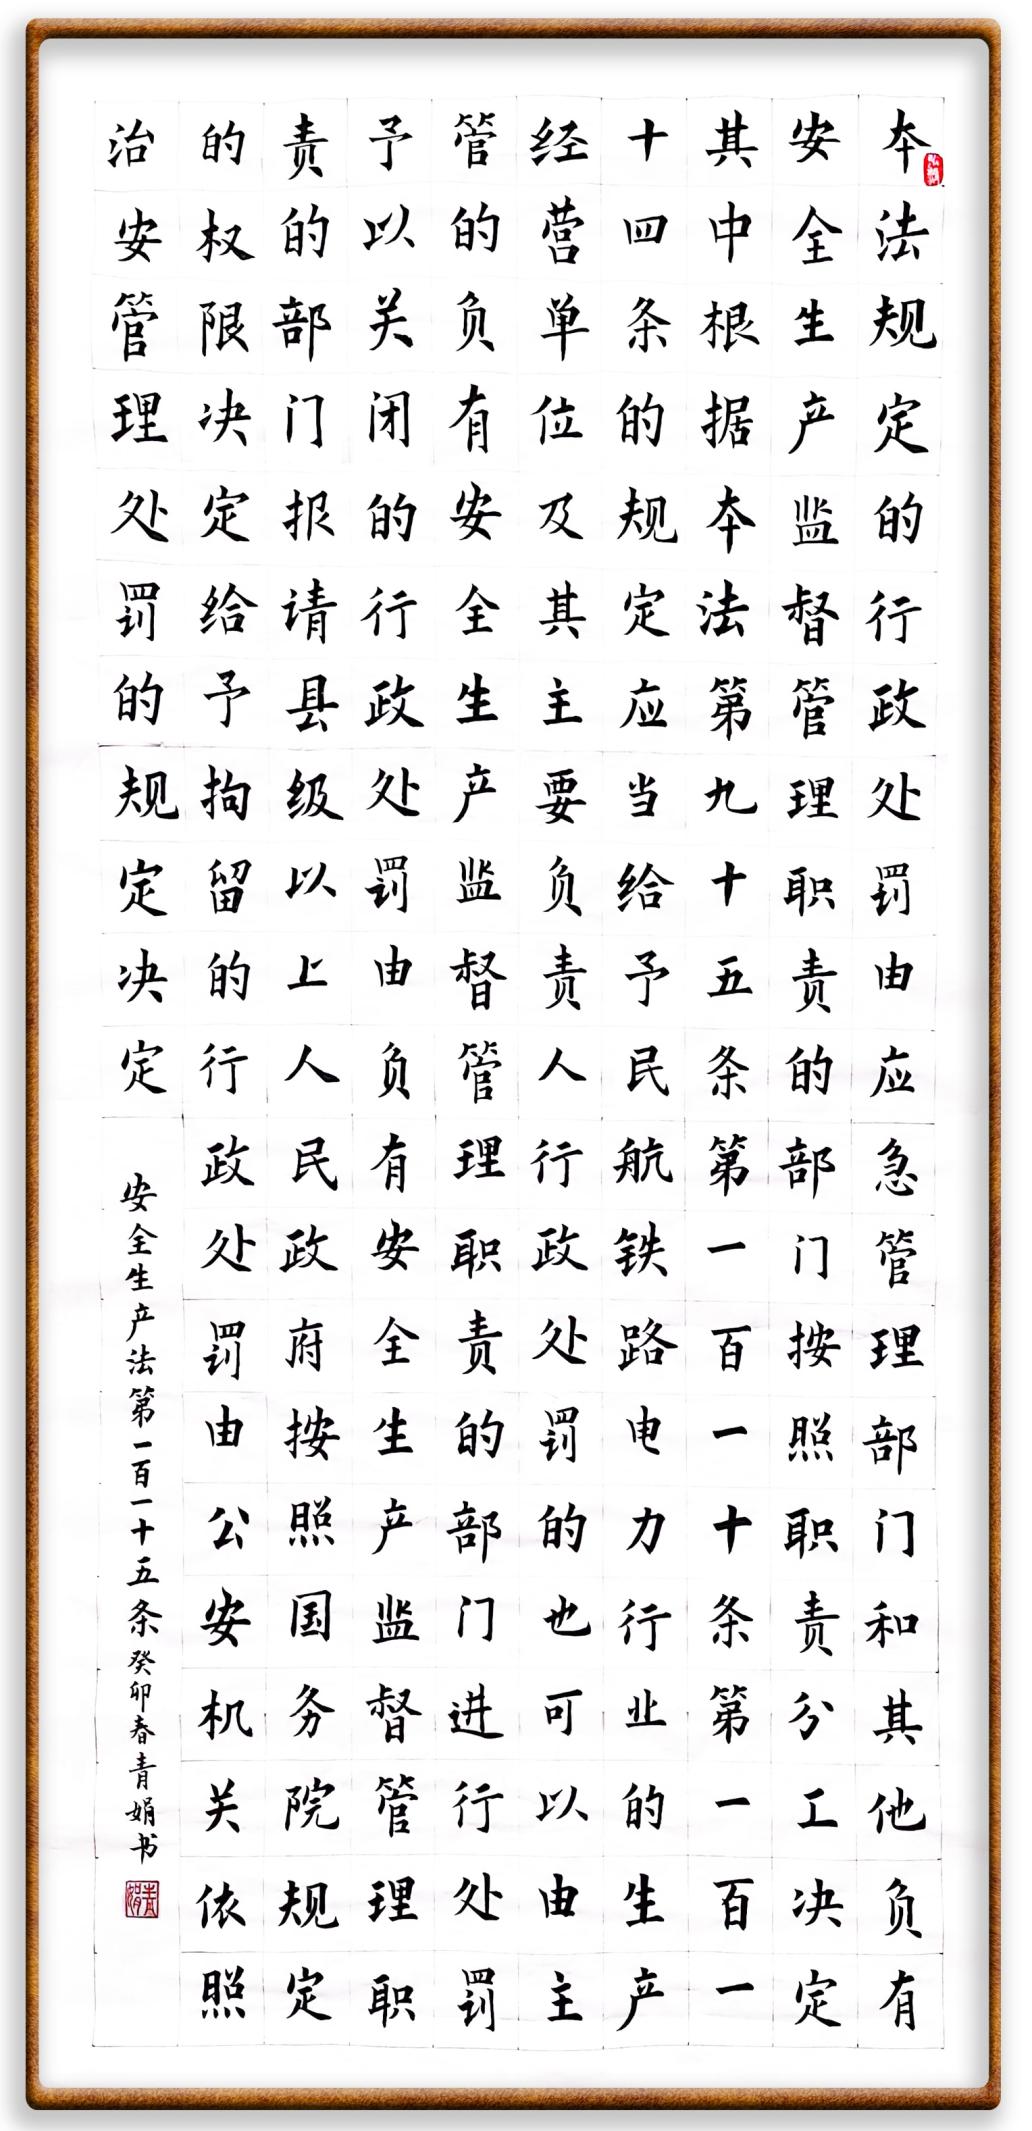 本法规定的行政处罚由应急管理部门和其他负有
安全生产监督管理职责的部门按照职责分工决定
其中根据本法第九十五条第一百一十条第一百一
十四条的规定应当给予民航铁路电力行业的生产
经营单位及其主要负责人行政处罚的也可以由主
管的负有安全生产监督管理职责的部门进行处罚
予以关闭的行政处罚由负有安全生产监督管理职
责的部门报请县级以上人民政府按照国务院规定
的权限决定给予拘留的行政处罚由公安机关依照
治安管理处罚的规定决定
安全生产法第一百一十五条癸卯春青娟书
青娟